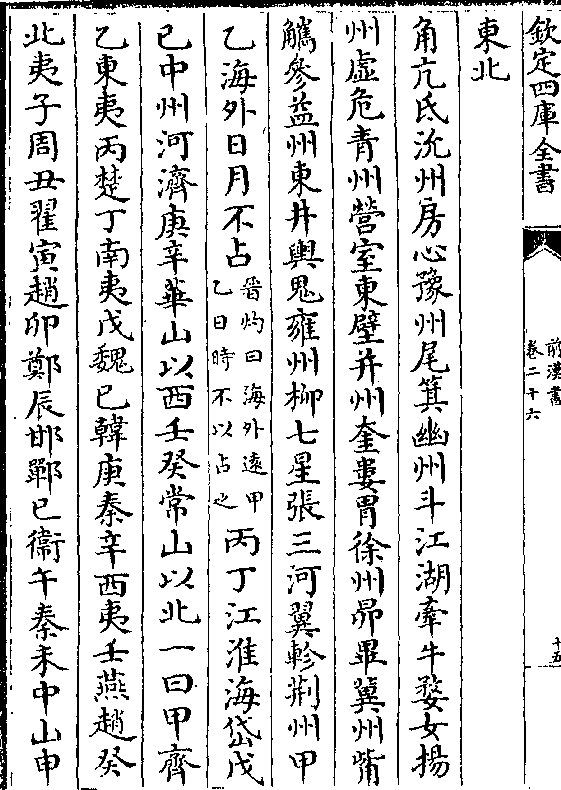 欽定四庫全書
前漢書
卷二十六
十五
東北
角亢氐沇州房心豫州尾箕幽州斗江湖牽牛婺女揚
州虛危青州營室東壁并州奎婁胃徐州昴畢冀州觜
觿參益州東井輿鬼雍州柳七星張三河翼軫荆州甲
乙海外日月不占晉灼曰海外遠甲乙日時不以占之丙丁江淮海岱戊
已中州河濟庚辛華山以西壬癸常山以北一曰甲齊
乙東夷丙楚丁南夷戊魏已韓庚秦辛西夷壬燕趙癸
北夷子周丑翟寅趙卯鄭辰邯鄲巳衞午秦未中山申